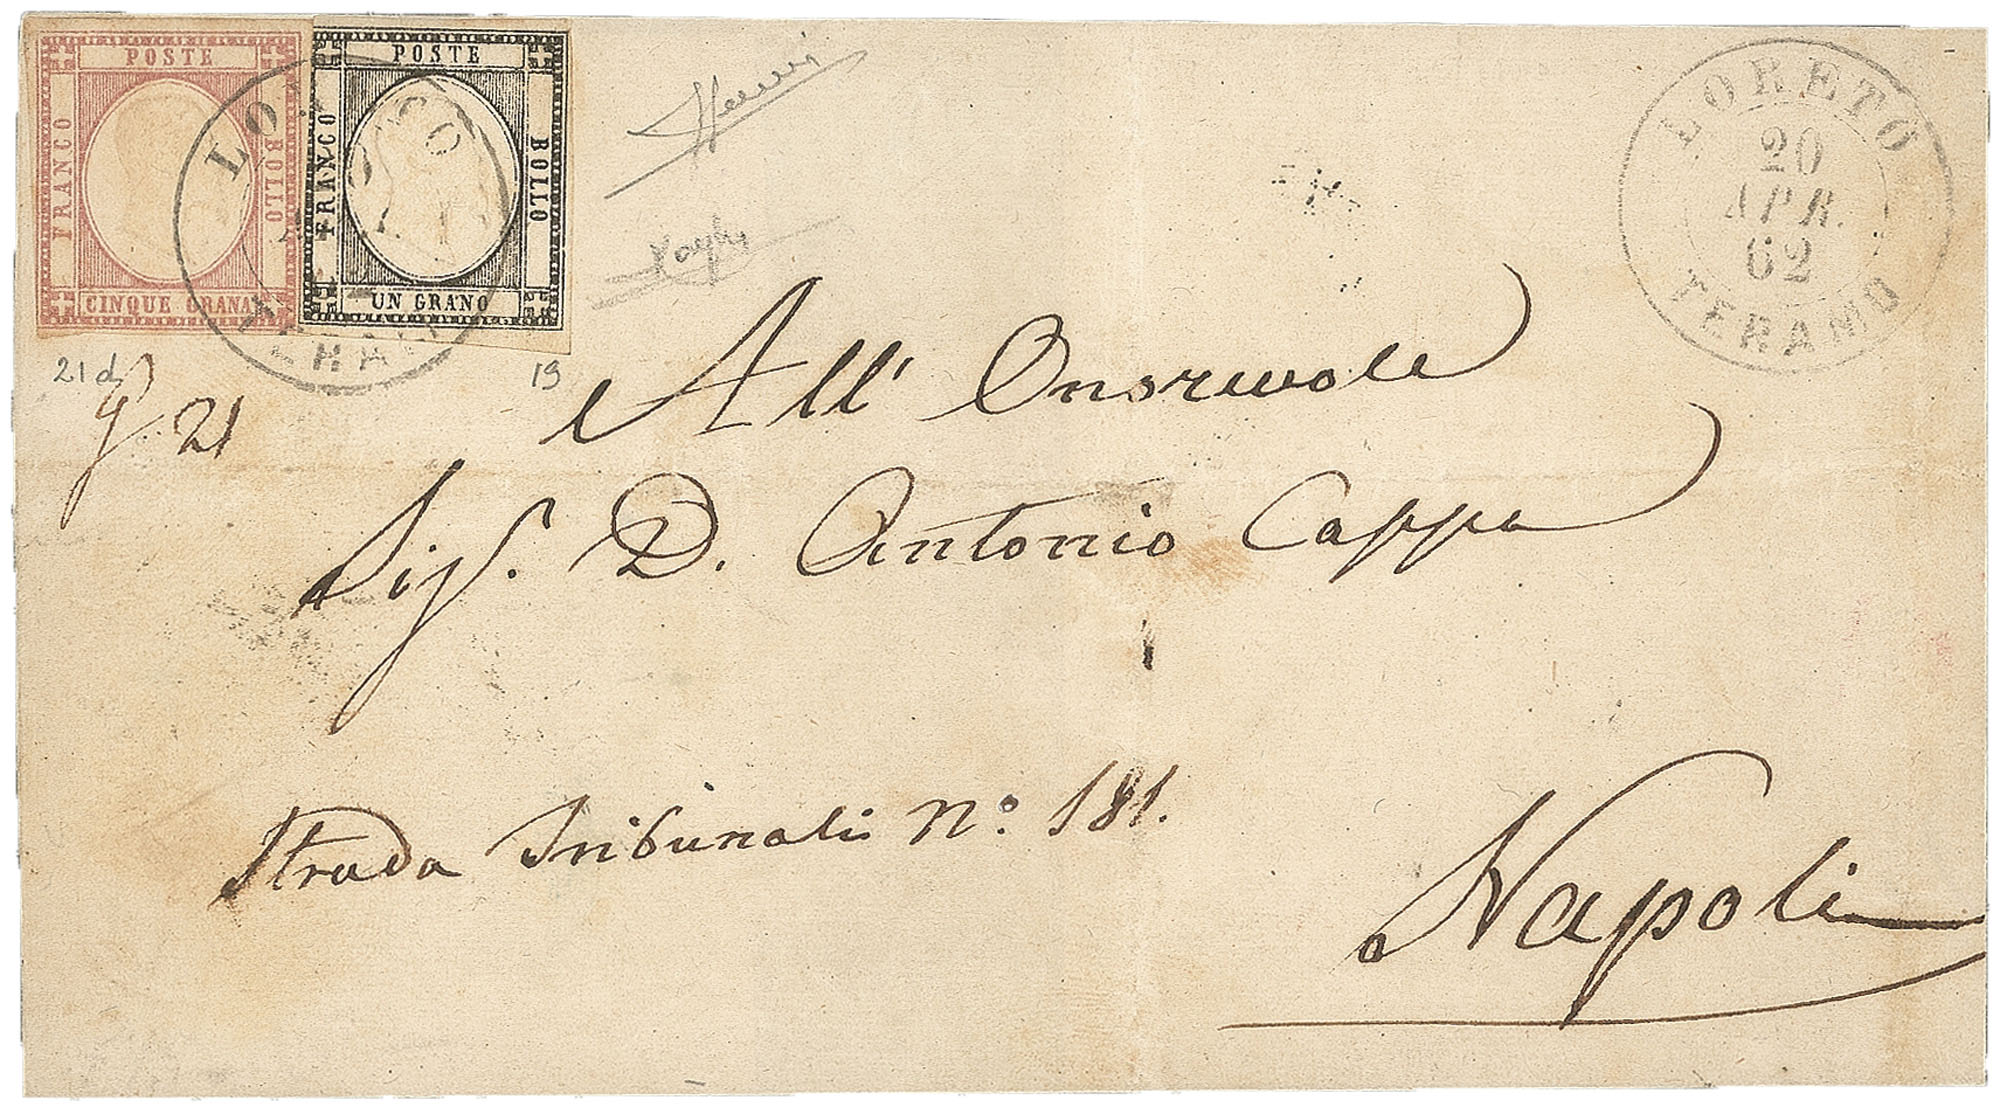 POSTE
FRANCO
BOLLO
CINQUE GRANA
POSTE
FRANCO
BOLLO
UN GRANO
LORETO
20
APR.
62
TERAMO
21 d
19
21
All' Onorevole
Sigr. D. Antonio Cappa
Strada Tribunali N.º 181.
Napoli